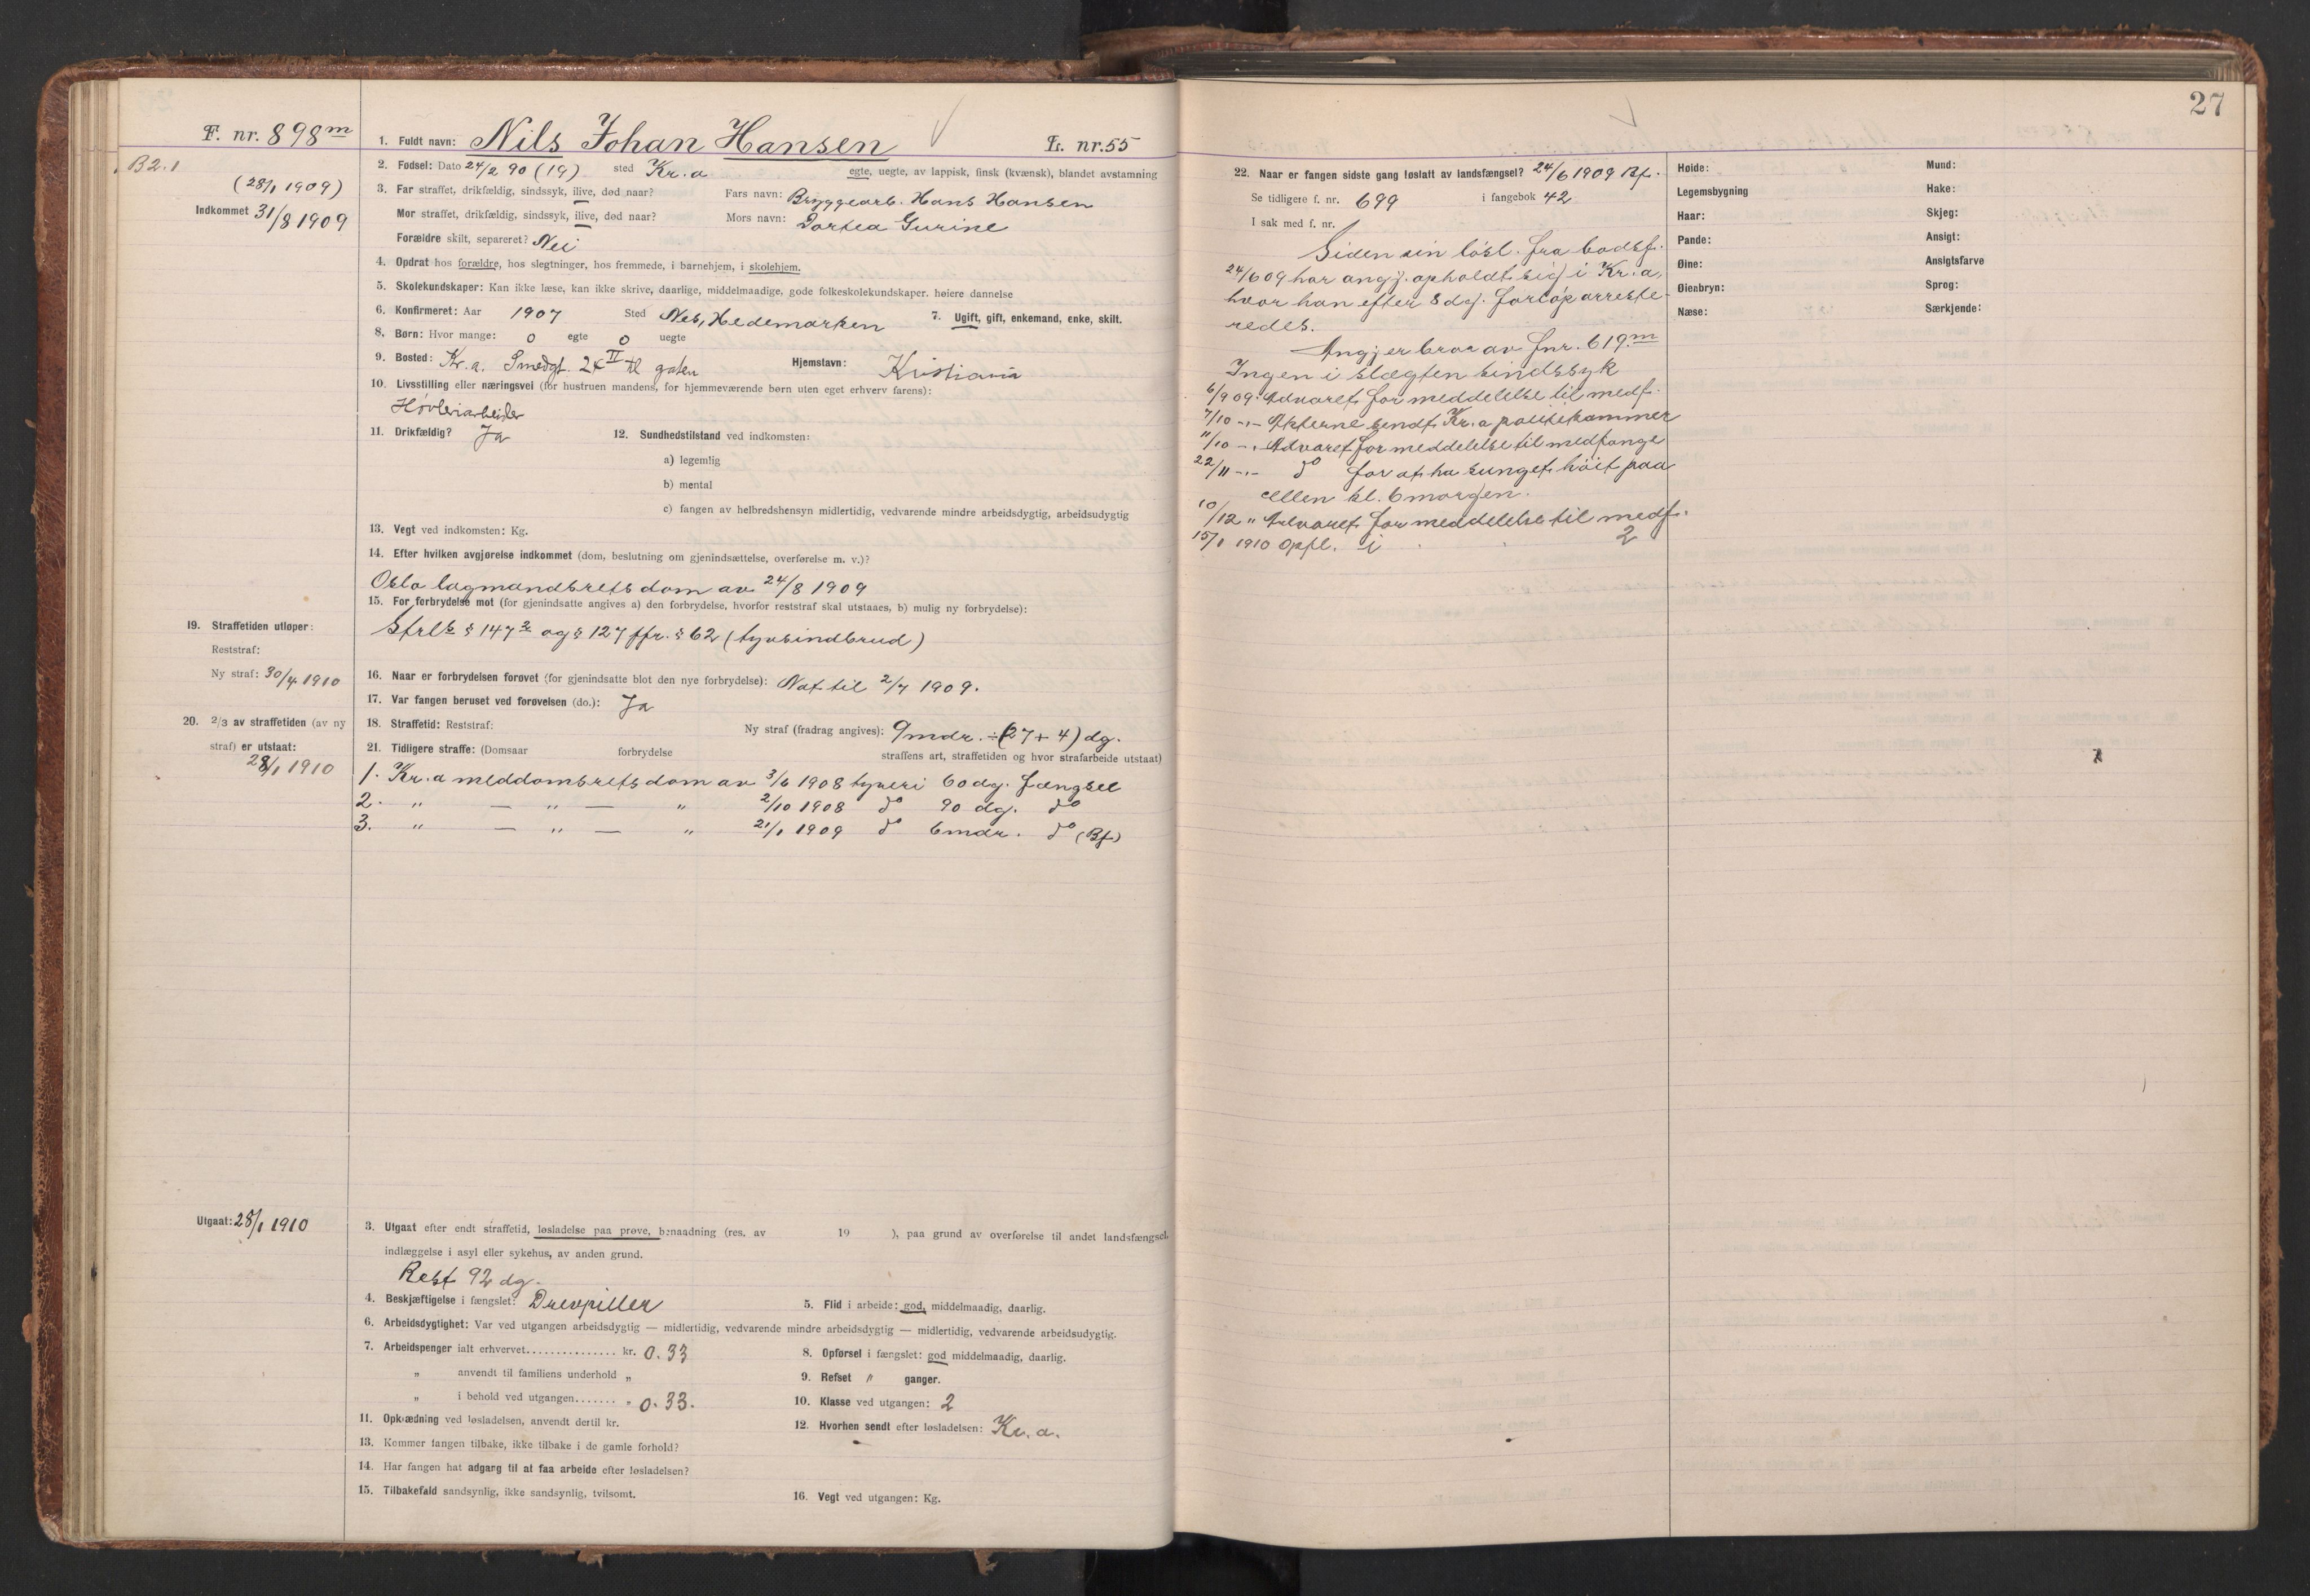 27
F. nr. 898 m
B 2.1
(28/1 1909)
Indkommet 31/8 1909
1. Fuldt navn: Nils Johan Hansen L. nr. 55
2. Fødsel: Dato 24/2 90 (19) sted Kr.a egte, uegte, av lappisk, finsk (kvænsk), blandet avstamning
3. Far straffet, drikfældig, sindssyk, ilive, død naar? Fars navn: Bryggearb. Hans Hansen
Mor straffet, drikfældig, sindssyk, ilive, død naar? Mors navn: Dortea Gurine
Forældre skilt, separeret? Nei
4. Opdrat hos forældre, hos slegtninger, hos fremmede, i barnehjem, i skolehjem.
5. Skolekundskaper: Kan ikke læse, kan ikke skrive, daarlige, middelmaadige, gode folkeskolekundskaper. høiere dannelse
6. Konfirmeret: Aar 1907 Sted Nes, Hedemarken 7. Ugift, gift, enkemand, enke, skilt.
8. Børn: Hvor mange: 0 egte 0 uegte
9. Bosted: Kr.a. Smedgt. 24 II til gaten Hjemstavn: Kristiania
10. Livsstilling eller næringsvei (for hustruen mandens, for hjemmeværende børn uten eget erhverv farens):
Høvleriarbeider
11. Drikfældig? Ja 12. Sundhedstilstand ved indkomsten:
a) legemlig
b) mental
c) fangen av helbredshensyn midlertidig, vedvarende mindre arbeidsdygtig, arbeidsudygtig
13. Vegt ved indkomsten: Kg.
14. Efter hvilken avgjørelse indkommet (dom, beslutning om gjenindsættelse, overførelse m. v.)?
Oslo lagmandsrets dom av 24/8 1909
15. For forbrydelse mot (for gjenindsatte angives a) den forbrydelse, hvorfor reststraf skal utstaaes, b) mulig ny forbrydelse):
Strl's § 147 2 og § 127 jfr. § 62 (tyvsindbrud)
19. Straffetiden utløper:
Reststraf:
Ny straf: 30/4 1910
16. Naar er forbrydelsen forøvet (for gjenindsatte blot den nye forbrydelse): Nat til 2/7 1909.
17. Var fangen beruset ved forøvelsen (do.): Ja
20. 2/3 av straffetiden (av ny
straf) er utstaat:
28/1 1910
18. Straffetid: Reststraf: Ny straf (fradrag angives): 9 mdr. ÷ (27 + 4) dg.
21. Tidligere straffe: (Domsaar forbrydelse straffens art, straffetiden og hvor strafarbeide utstaat)
1. Kr.a meddomsrets dom av 3/6 1908 tyveri 60 dg. fængsel
2. " — " — " 2/10 1908 do 90 dg. do
3. " — " — " 21/1 1909 do 6 mdr. do (Bf)
Utgaat: 28/1 1910
3. Utgaat efter endt straffetid, løsladelse paa prøve, benaadning (res. av 19 ), paa grund av overførelse til andet landsfængsel,
indlæggelse i asyl eller sykehus, av anden grund.
Rest 92 dg.
4. Beskjæftigelse i fængslet: Drevpiller 5. Flid i arbeide: god, middelmaadig, daarlig.
6. Arbeidsdygtighet: Var ved utgangen arbeidsdygtig — midlertidig, vedvarende mindre arbeidsdygtig — midlertidig, vedvarende arbeidsudygtig.
7. Arbeidspenger ialt erhvervet............... kr. 0.33 8. Opførsel i fængslet: god middelmaadig, daarlig.
" anvendt til familiens underhold " 9. Refset " ganger.
" i behold ved utgangen....... " 0.33. 10. Klasse ved utgangen: 2
11. Opklædning ved løsladelsen, anvendt dertil kr. 12. Hvorhen sendt efter løsladelsen: Kr.a.
13. Kommer fangen tilbake, ikke tilbake i de gamle forhold?
14. Har fangen hat adgang til at faa arbeide efter løsladelsen?
15. Tilbakefald sandsynlig, ikke sandsynlig, tvilsomt. 16. Vegt ved utgangen: Kg.
22. Naar er fangen sidste gang løslatt av landsfængsel? 24/6 1909 Bf.
Se tidligere f. nr. 699 i fangebok 42
I sak med f. nr.
Siden sin løsl. fra bodsf.
24/6 09 har angj. opholdt sig i Kr.a,
hvor han efter 8 dg. forløp arreste-
redes.
Angj er bror av fnr. 619 m
Ingen i slægten sindssyk
6/9 09. Advaret for meddelelse til medf.
7/10 -"- Akterne sendt Kr.a politikammer
11/10 -"- Advaret for meddelelse til medfange
22/11 -"- do for at ha sunget høit paa
cellen kl. 6 morgen.
10/12 " Advaret for meddelelse til medf.
15/1 1910 Opfl. i 2
Høide:
Legemsbygning
Haar:
Pande:
Øine:
Øienbryn:
Næse:
Mund:
Hake:
Skjeg:
Ansigt:
Ansigtsfarve
Sprog:
Særkjende: